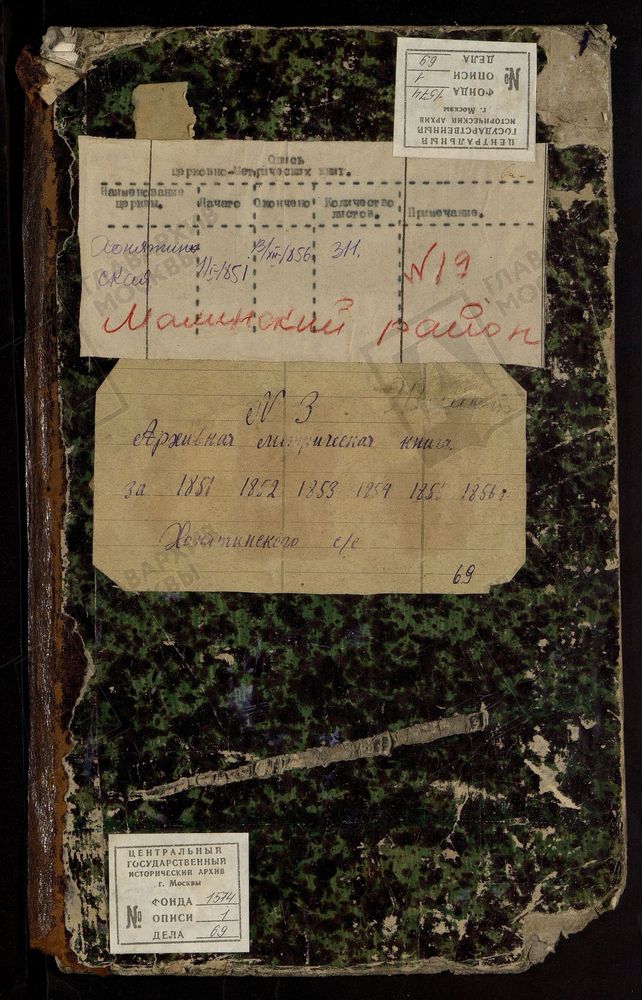 ЦЕНТРАЛЬНЫЙ
ГОСУДАРСТВЕННЫЙ
ИСТОРИЧЕСКИЙ АРХИВ
г. Москвы
№ ФОНДА 1574
ОПИСИ 1
ДЕЛА 69
Опись
церковно-Метрических книг.
Наименование церквы. Начато Окончено Количество листов. Примечание.
Хонятин-
ская 1/I-1851 /XII-1856 311. N19
Малинский район
N 3
Архивная метрическая книга
за 1851 1852 1853 1854 1855 1856 г
Хонятинского с/с
69
ЦЕНТРАЛЬНЫЙ
ГОСУДАРСТВЕННЫЙ
ИСТОРИЧЕСКИЙ АРХИВ
г. Москвы
№ ФОНДА 1574
ОПИСИ 1
ДЕЛА 69
ГЛАВАРХИВ
МОСКВЫ